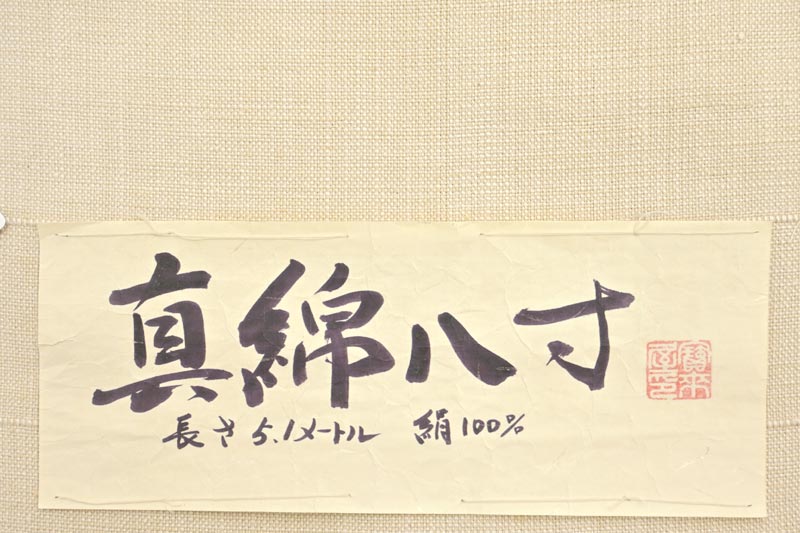 真綿八寸
長さ5.1メートル 絹100%